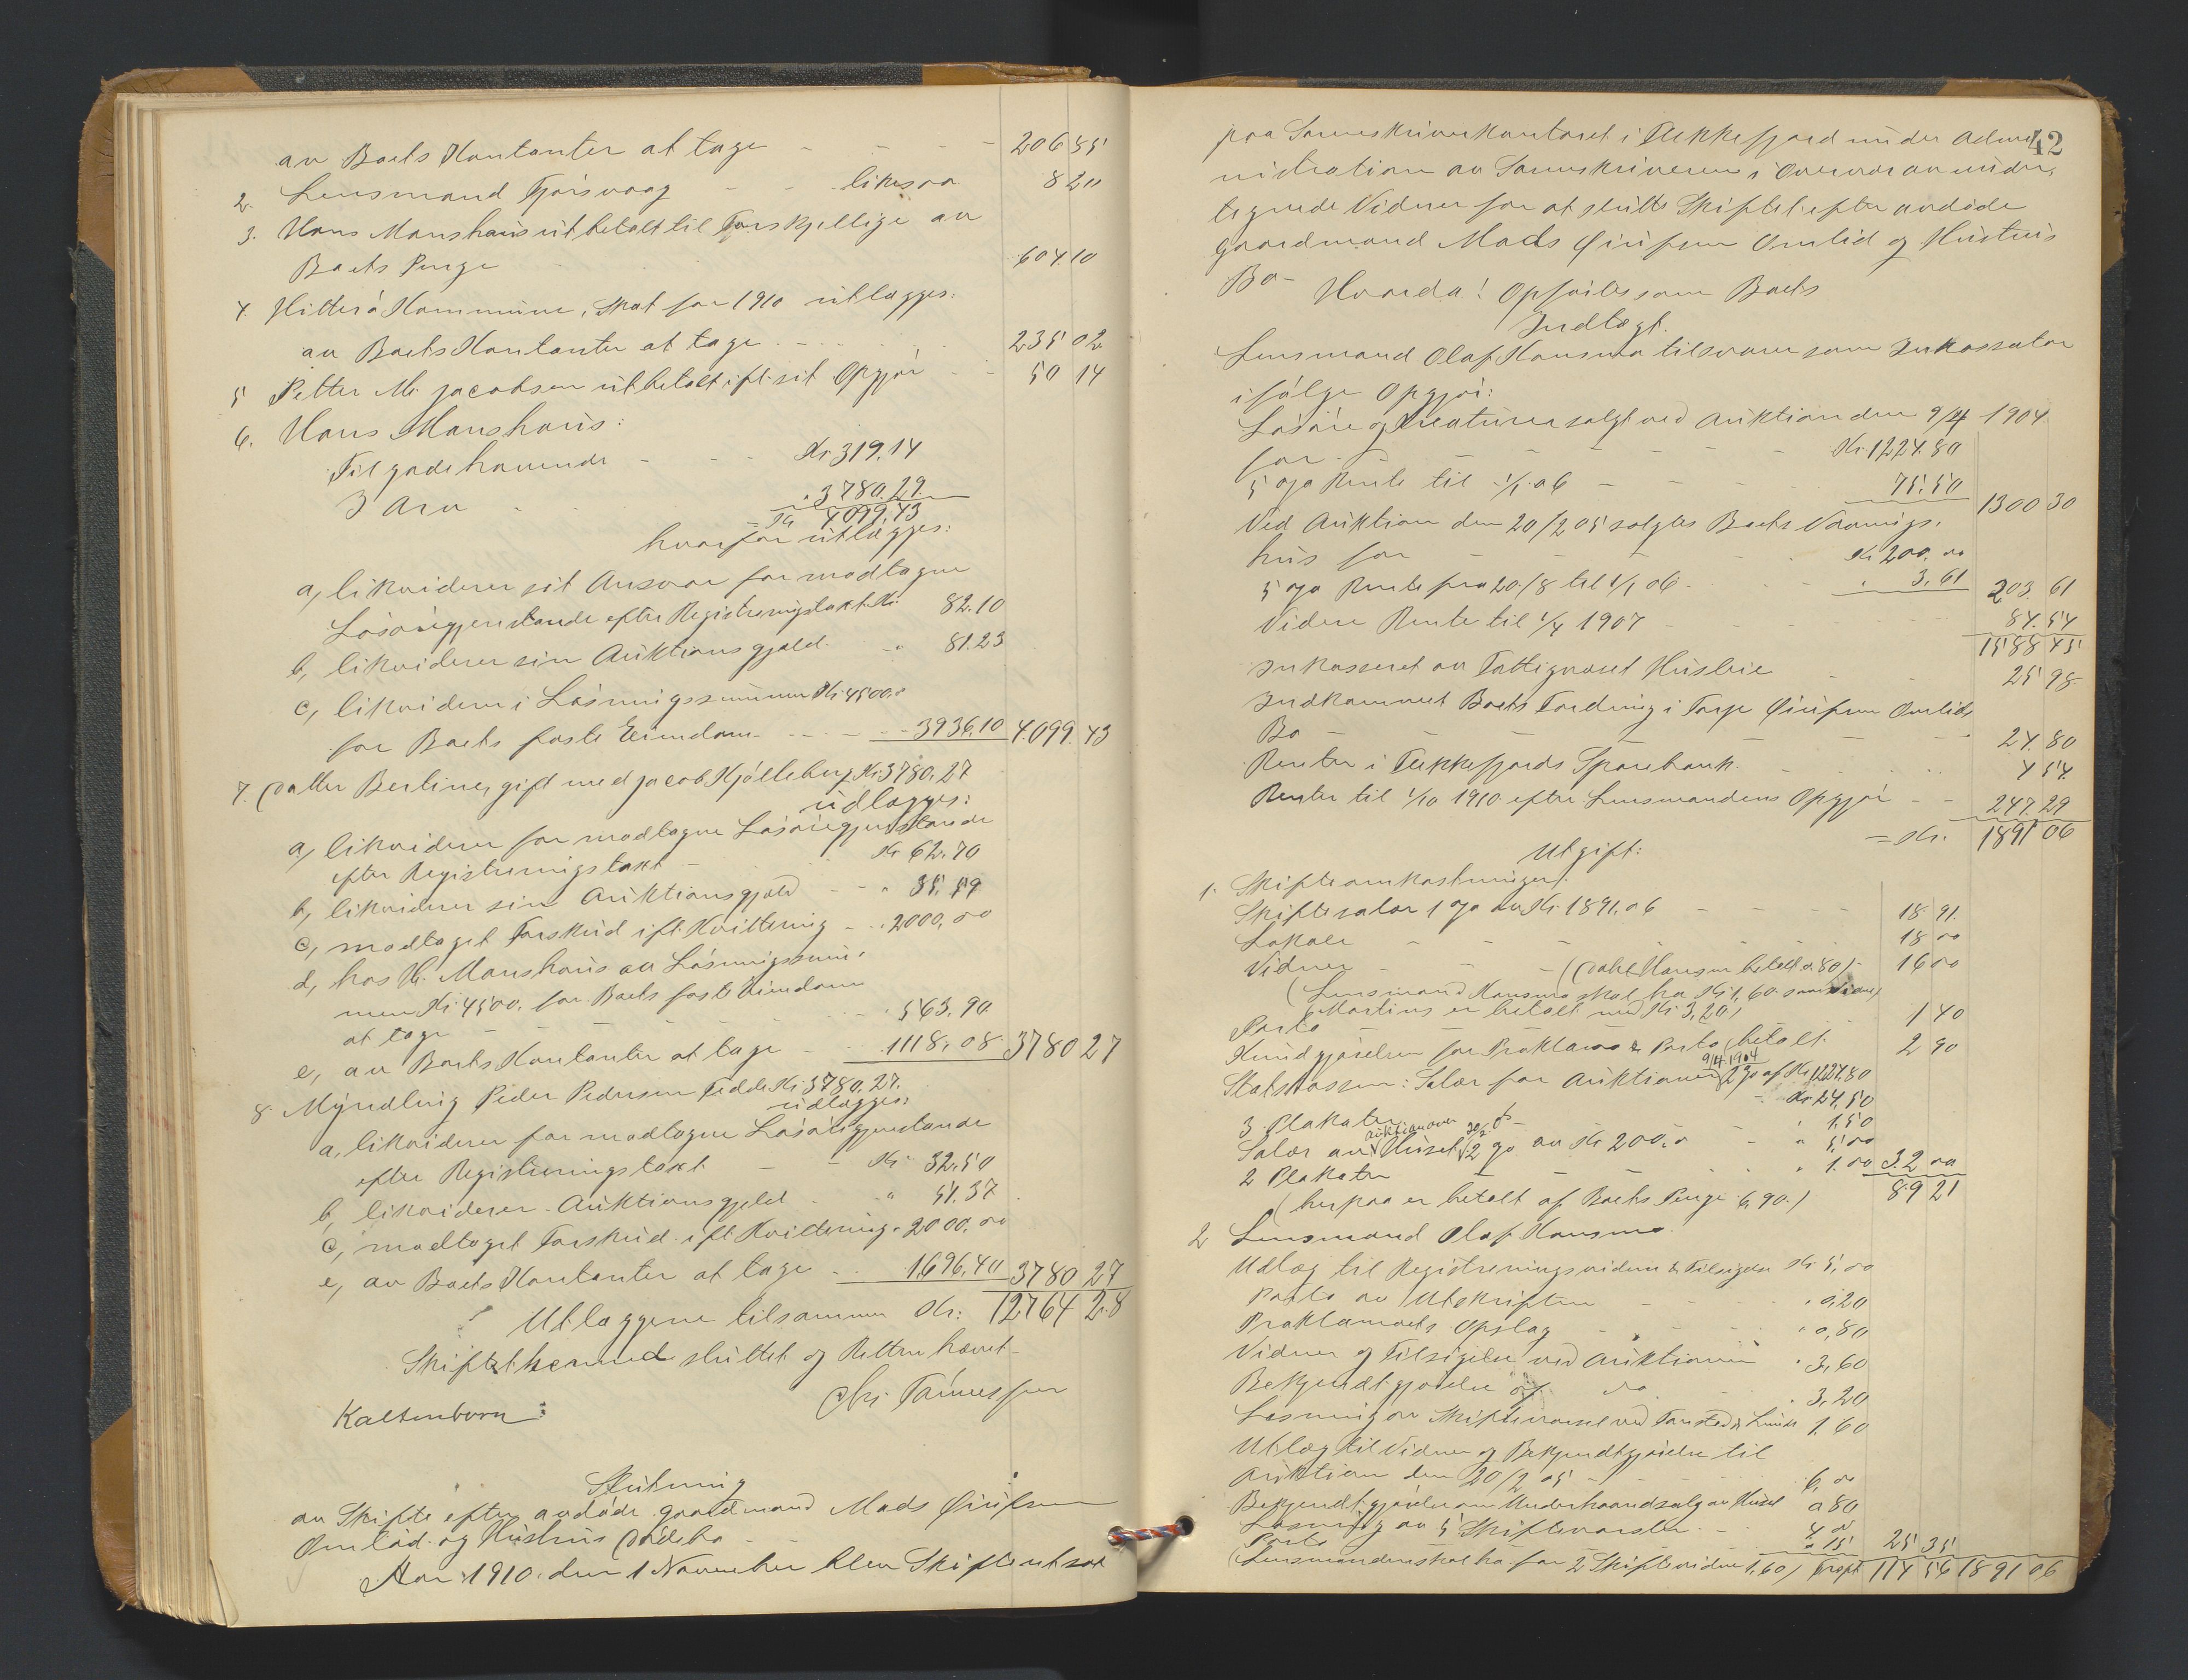 av Boets Kontanter at tage - - - - 206 55
2. Lensmand Tjørsvaag - - likesaa 8 20
3. Hans Manshaus utbetalt til Forskjellige av
Boets Penge 604 10
4. Hitterø Kommune, Skat for 1910 utlægges:
av Boets Kontanter at tage - - - 235 02
5 Petter M. Jacobsen utbetalt ifl. sit Opgjør - - 50 14
6. Hans Manshaus:
Tilgodehavende - - - Kr 319.14
I Arv - - " 3780.29.
= Kr 4099,43
hvorfor utlægges:
a, likviderer sit Ansvar for modtagne
Løsøregjenstande efter Registreringstakst Kr. 82.10
b, likviderer sin Auktionsgjæld - " 81.23
c, likviderer i Løsningssummen Kr 4500.-
for Boets faste Eiendom - - - 3936.10 4099. 43
7. Datter Berline, gift med Jacob Kjølleberg Kr. 3780.27
udlægges:
a, likviderer for modtagne Løsøregjenstande
efter Registreringstakst - Kr 62.70
b, likviderer sin Auktionsgjæld - - " 35.59
c, modtaget Forskud ifl. Kvittering - - " 2000,00
d, hos H. Manshaus av Løsningssum-
men Kr. 4500. for Boets faste Eiendom
at tage - - - - - - 563.90
e, av Boets Kontanter at tage - - 1118,08 3780 27
8. Myndling Peder Pedersen Fedde Kr. 3780.27.
udlægges:
a, likviderer for modtagne Løsøregjenstande
efter Registreringstakst - - Kr 32.50
b, likviderer Auktionsgjeld - " 51.37
c, modtaget Forskud ifl. Kvittering " 2000.00
e, av Boets Kontanter at tage - - 1696,40 3780 27
Utlæggene tilsammen Kr: 12764 28
Skiftet hermed sluttet og Retten hævet -
Chr. Tønnessen
Kaltenborn:
Slutning
av Skifte efter avdøde gaardmand Mads
Omlid og Hustrus Dødsbo -
Aar 1910 den 1 November blev Skifteretsat
42
paa Sorenskriverkontoret i Flekkefjord under Admi-
nistration av Sorenskriveren i Overvær av under-
tegnede Vidner for at slutte Skiftet efter avdøde
gaardmand Mads Omlid og Hustrus
Bo - Hvorda: Opføites som Boets
Indtægt.
Lensmand Olaf Hansma tilsvarer som Inkassator
ifølge Opgjør:
Løsøre og Kreaturer solgt ved Auktion den 9/4 1904
for - - - - - - Kr. 1224.80
5 % Rente til 1/1 06 - - - 75.50 1300 30
Ved Auktion den 20/2 05 solgtes Boets Vaanings-
hus for - - - - Kr 200.00
5 % Rente fra 20/8 til 1/1 06 - - " 3,61 203 61
Videre Rente til 1/4 1907 - - - - 84.54
1588 45
Inkasseret av Fattigvæsnet Husleie - - 25 98
Indkommet Boets Fordring i Omlids
Bo - - - - - - - 24. 80
Renter i Flekkefjords Sparebank - - - 4 54
Renter til 1/10 1910 efter Lensmandens Opgjør - - 247. 29
= Kr. 1891 06
Utgift:
1. Skifteomkostninger:
Skiftesalær 1 % av Kr. 1891.06 - - - - 18 91.
Lokale - - - - - - 18 00
Vidner - - - - ( Hansen betalt 0.80) - 16 00
(Lensmand Hansma skal ha Kr. 1,60
Martins er betalt med Kr. 3,20)
Porto - - - - - 1 40
Kundgjørelsen for Proklama & Porto, betalt. 2 90
Statskassen: Salær for Auktionen 9/4 1904 2 % af Kr 1224.80
- Kr 24,50
3 Plakater - - - " 1.50
Salær av Auktion over Huset 20/2 05 2 % av Kr 200.- - " 5.00
2 Plakater - - - - " 1.00 32 00
(herpaa er betalt af Boets Penge 6,90.) 89 21
2 Lensmand Olaf Hansma
Utlæg til Registreringsvidner & Tilsigelse Kr 5,00
Porto av Utskriften - - - " 0,20
Proklamaets Opslag - - - " 0,80
Vidner og Tilsigelse ved Auktionen " 3,60
Bekjendtgjørelse af do - " 3,20
Læsning av Skiftevarsel ved Tarstad & Lunde 1.60
Utlæg til Vidner og Bekjendtgjørelse til
Auktion den 20/2 05 - - - 6,00
Bekjendtgjørelse om Underhaandsalg av Huset 0 80
Læsning av 5 Skiftevarsler - - 4 00
Porto 0 15 25 35
(Lensmanden skal ha for 2 Skiftevidner 1,60) Transpt 114 56 1891 06